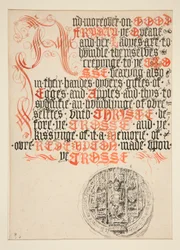 And moreover on GOOD
FRYDAY ye Queane
and her Ladyes are to
humble themselves
creepynge to ye CRO
SSE bearing also
in their handes dyvers giftes of
Egges and Apples and thys to
signifie an humblynge of oure
selfes unto CHRISTE be
fore ye CROSSE and ye
kissynge of it a Memorie of
oure REDEMPTION made upon
ye CROSSE